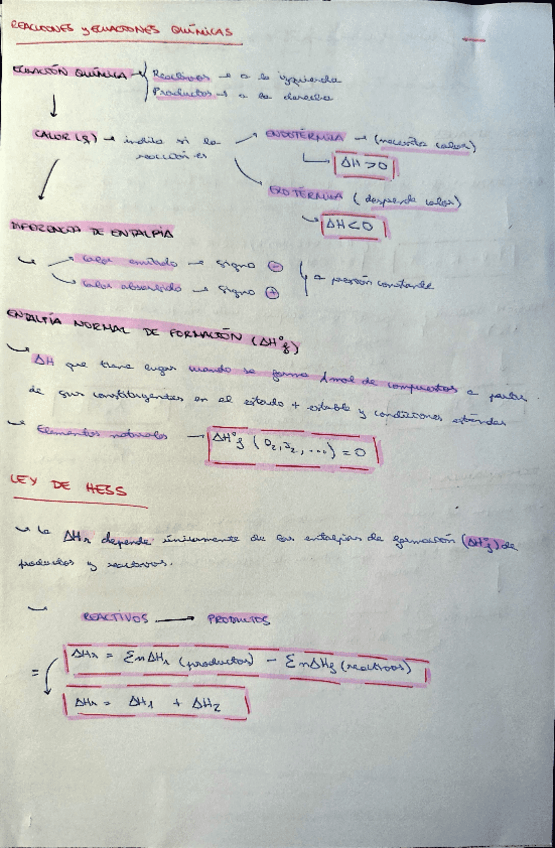 REACCIONES y ECUACIONES QUÍMICAS
ECUACIÓN QUÍMICA → Reactivos → a la izquierda
Productos → a la derecha
CALOR (q) → indica si la reacción es
ENDOTÉRMICA → (necesita calor)
ΔH > 0
EXOTÉRMICA (desprende calor)
ΔH < 0
DIFERENCIA DE ENTALPÍA
Calor emitido → signo ⊖
Calor absorbido → signo ⊕
a presión constante
ENTALPÍA NORMAL DE FORMACIÓN (ΔH°f)
ΔH que tiene lugar cuando se forma 1mol de compuestos a partir
de sus constituyentes en el estado + estable y condiciones estándar
Elementos naturales → ΔH°f (O2, I2, ...) = 0
LEY DE HESS
La ΔHr depende únicamente de las entalpías de formación (ΔH°f) de
productos y reactivos.
REACTIVOS → PRODUCTOS
ΔHr = ΣnΔHf (productos) - ΣnΔHf (reactivos)
= ΔHr = ΔH1 + ΔH2